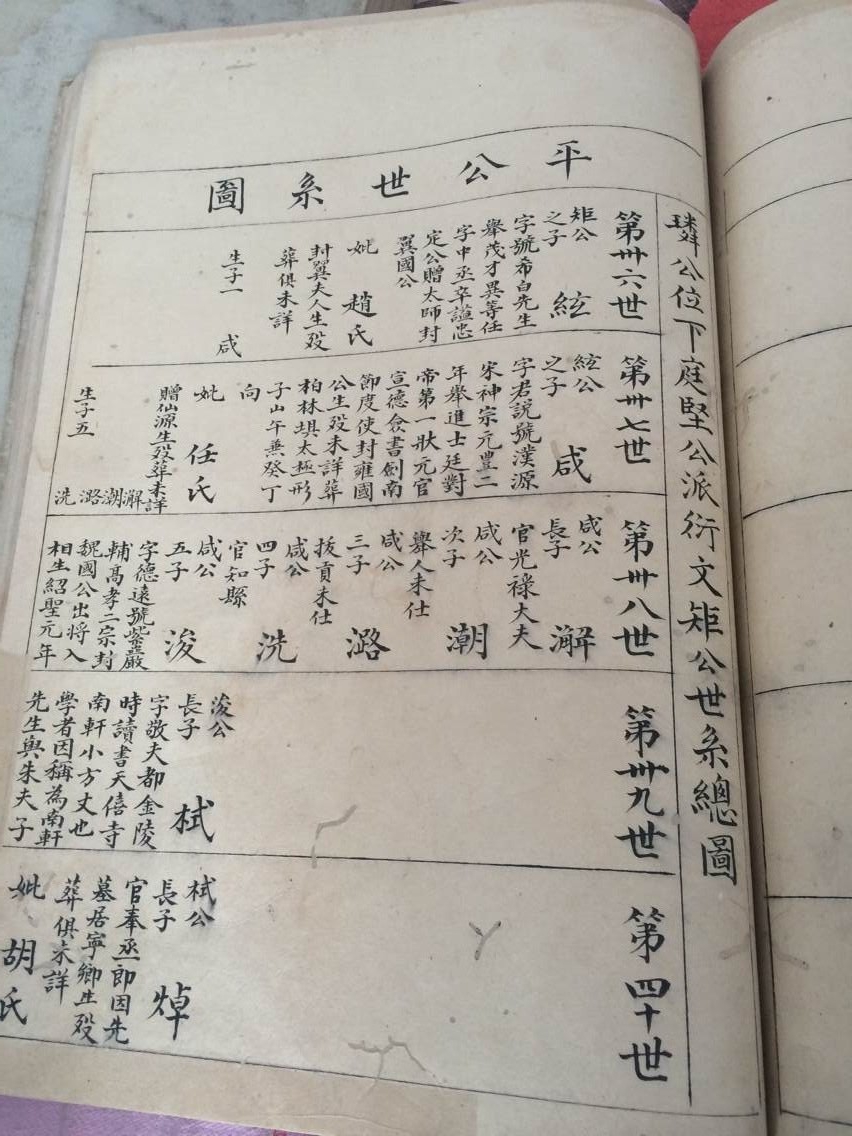 璘公位下庭堅公派衍文矩公世系總圖
平公世系圖
第卅六世
矩公
之子
絃
字號希白先生
舉茂才異等任
字中丞卒謚忠
定公贈太師封
冀國公
妣 趙氏
封冀夫人生殁
葬俱未詳
生子一 咸
第卅七世
絃公
之子
咸
字君説號漢源
宋神宗元豊二
年舉進士廷對
帝第一狀元官
宣德僉書劍南
節度使封雍國
公生殁未詳葬
柏林埧太極形
子山午兼癸丁
向
妣 任氏
贈仙源生殁葬未詳
生子五 澥潮潞洗
第卅八世
咸公
長子
澥
官光祿大夫
咸公
次子
潮
舉人未仕
咸公
三子
潞
拔貢未仕
咸公
四子
洗
官知縣
咸公
五子
浚
字德遠號紫巖
輔高孝二宗封
魏國公出将入
相生紹聖元年
第卅九世
浚公
長子
栻
字敬夫都金陵
時讀書天僖寺
南軒小方丈也
學者因稱為南軒
先生與朱夫子
第四十世
栻公
長子
焯
官奉丞郎因先
墓居寧鄉生殁
葬俱未詳
妣 胡氏